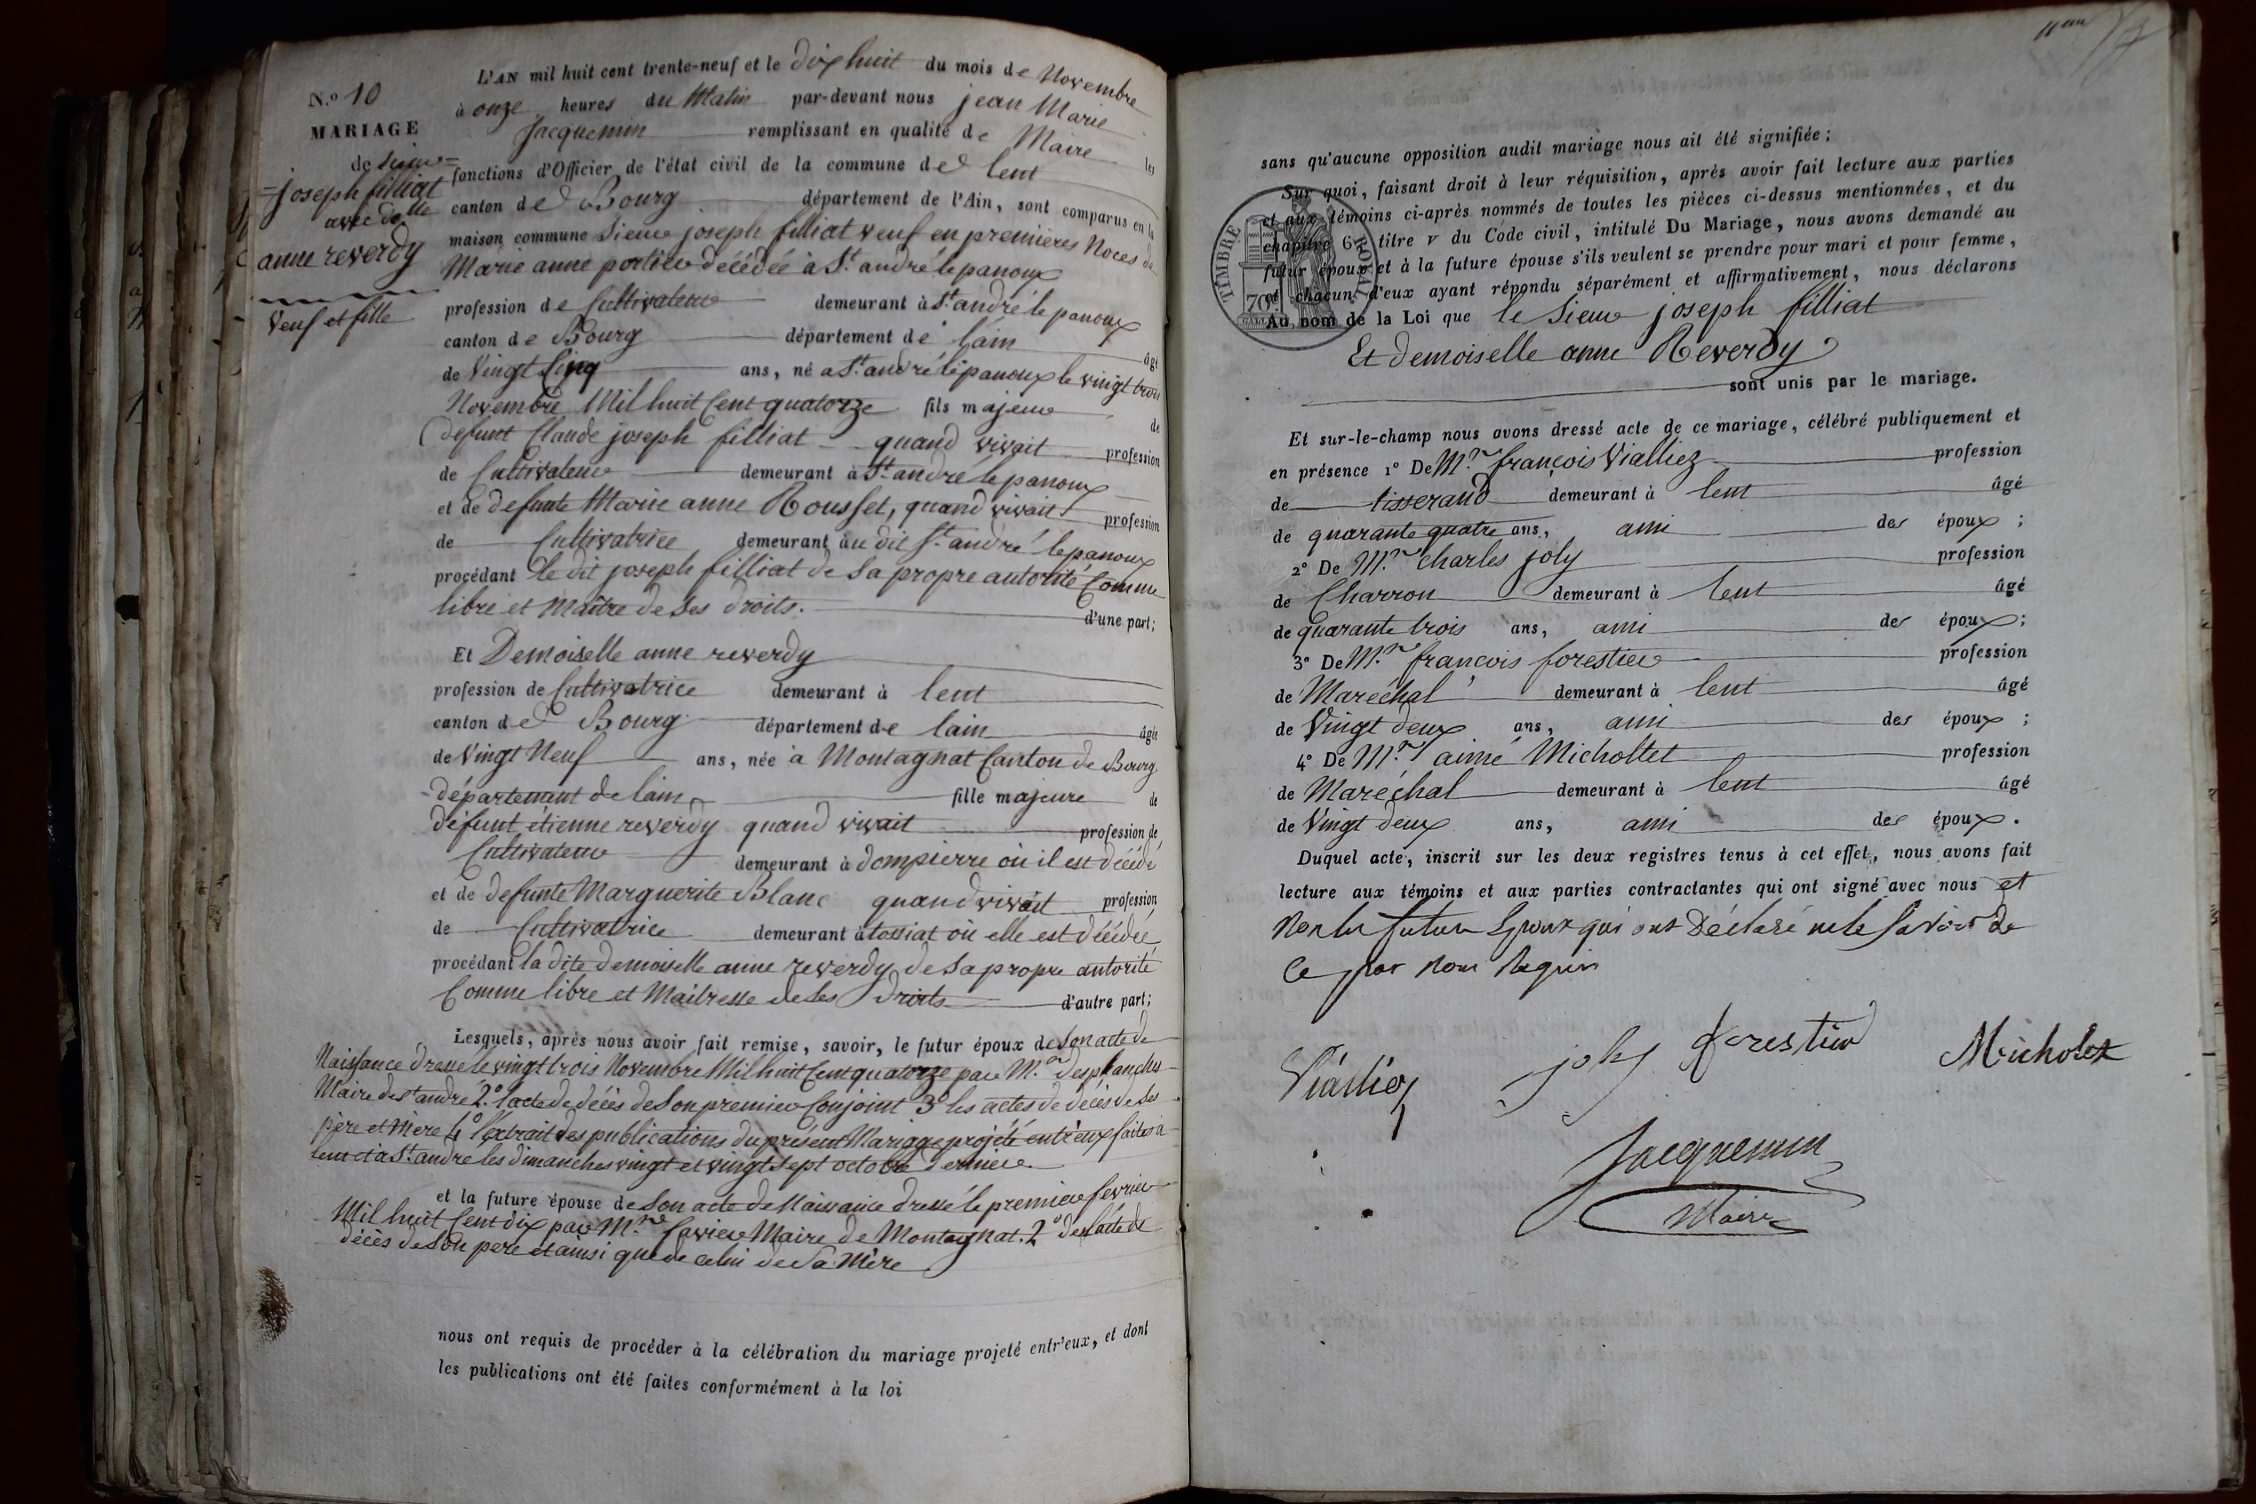 N.º 10
MARIAGE
de Sieur
joseph filliat
avec Delle
anne reverdy
Veuf et fille
L'AN mil huit cent trente-neuf et le dix huit du mois de Novembre
à onze heures du Matin par-devant nous jean Marie
Jacquemin remplissant en qualité de Maire les
fonctions d'Officier de l'état civil de la commune de lent
canton de Bourg département de l'Ain, sont comparus en la
maison commune Sieur joseph filliat veuf en premières Noces de
Marie anne portier décédée à St. andré le panoux
profession de Cultivateur demeurant à St. andré le panoux
canton de Bourg département de lain âgé
de Vingt Cinq ans, né a St. andré le panoux le vingt trois
Novembre Mil huit Cent quatorze fils majeur de
defunt Claude joseph filliat quand vivait profession
de Cultivateur demeurant à St. andré le panoux
et de defunte Marie anne Rousset, quand vivait profession
de Cultivatrice demeurant au dit St. andré le panoux
procédant le dit joseph filliat de Sa propre autorité Comme
libre et Maître de Ses droits. d'une part;
Et Demoiselle anne reverdy
profession de Cultivatrice demeurant à lent
canton de Bourg département de lain âgée
de Vingt Neuf ans, née à Montagnat Canton de Bourg
département de lain fille majeure de
défunt étienne reverdy quand vivait profession de
Cultivateur demeurant à dompierre où il est décédé
et de defunte Marguerite Blanc quand vivait profession
de Cultivatrice demeurant à tossiat où elle est décédée
procédant la dite demoiselle anne reverdy de Sa propre autorité
Comme libre et Maîtresse de Ses droits d'autre part;
Lesquels, après nous avoir fait remise, savoir, le futur époux de Son acte de
Naissance dressé le vingt trois Novembre Mil huit Cent quatorze par M.r desplanches
Maire de St andré 2.º lacte de décès de Son premier Conjoint 3º les actes de décès de Ses
père et Mère 4º l'extrait des publications du présent Mariage projété entr'eux faites à
lent et à St. andré les dimanches vingt et vingt Sept octobre dernier.
et la future épouse de Son acte de Naissance dressé le premier fevrier
Mil huit Cent dix par M.r Maire de Montagnat. 2º de lacte de
décès de Son père et ainsi que de celui de Sa Mère
nous ont requis de procéder à la célébration du mariage projeté entr'eux, et dont
les publications ont été faites conformément à la loi
sans qu'aucune opposition audit mariage nous ait été signifiée;
Sur quoi, faisant droit à leur réquisition, après avoir fait lecture aux parties
et aux témoins ci-après nommés de toutes les pièces ci-dessus mentionnées, et du
chapitre 6, titre v du Code civil, intitulé Du Mariage, nous avons demandé au
futur époux et à la future épouse s'ils veulent se prendre pour mari et pour femme,
et chacun d'eux ayant répondu séparément et affirmativement, nous déclarons
Au nom de la Loi que le Sieur joseph filliat
Et demoiselle anne Reverdy
sont unis par le mariage.
TIMBRE ROYAL
70
Et sur-le-champ nous avons dressé acte de ce mariage, célébré publiquement et
en présence 1º De M.r françois Vialliez profession
de tisserand demeurant à lent âgé
de quarante quatre ans, ami des époux;
2º De M.r charles joly profession
de Charron demeurant à lent âgé
de quarante trois ans, ami des époux;
3º De M.r françois forestier profession
de Maréchal demeurant à lent âgé
de Vingt deux ans, ami des époux;
4º De M.r aimé Michollet profession
de Maréchal demeurant à lent âgé
de Vingt deux ans, ami des époux.
Duquel acte, inscrit sur les deux registres tenus à cet effet, nous avons fait
lecture aux témoins et aux parties contractantes qui ont signé avec nous et
Non les futurs Epoux qui ont Déclaré ne le Savoir de
Ce par Nous Requis
Vialliez joly forestier Micholet
Jacquemin
Maire